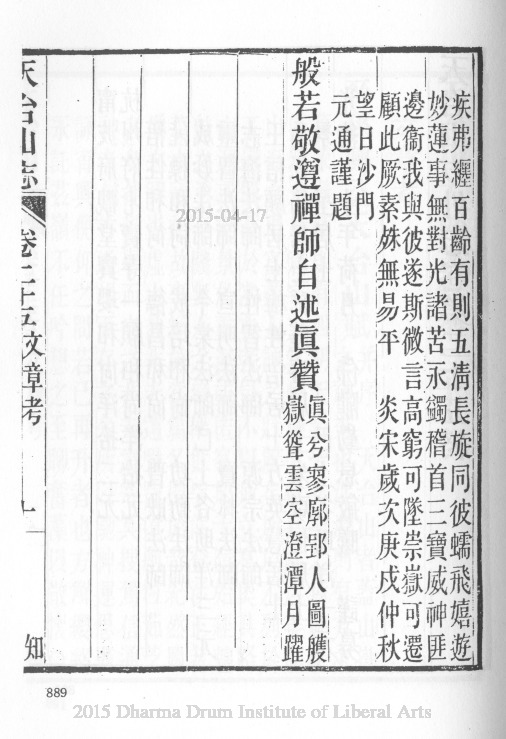 疾弗纏百齡有則五淸長旋同彼蠕飛嬉遊
妙蓮事無對光諸苦永蠲稽首三寶威神匪
邊衞我與彼遂斯微言高窮可墬崇嶽可遷
願此厥素殊無易平 炎宋歲次庚戍仲秋
望日沙門
元通謹題
般若敬遵禪師自述眞贊 眞兮寥廓郢人圖艧
嶽聳雲空澄潭月躍
天台山志 卷二十五文章考
知
2015-04-17
889
2015 Dharma Drum Institute of Liberal Arts